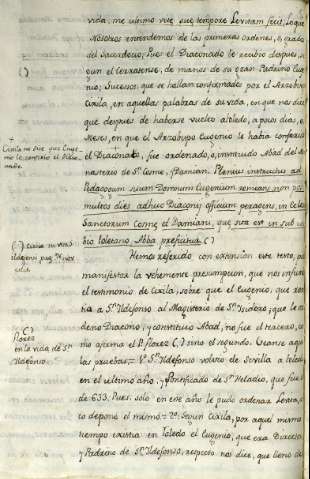 vida, me ultimo vice sua tempore Levitam fecit, lo que
nosotros entendemos de las primeras ordenes, o grados
del Sacerdocio; Pues el Diaconado le recibio despues, se-
gun el cerratense, de manos de su gran Padrino Euge-
nio; Sucesos que se hallan confirmados por el Arzobispo
Cixila, en aquellas palabras de su vida, en que nos dice
que despues de haberse vuelto a toledo, a pocos dias, o
Meses, en que el Arzobispo Eugenio le habia conferido
el Diaconato, fue ordenado, o instituido Abad del Mo-
nasterio de Sn. Cosme, y Damian. Plenius instructus ad
Pedagogum suum Domnum Eugenium remeans non post
multos dies adhuc Diaconii officium peragens, in Eccles.
Sanctorum Cosme et Damiani, que sita est in sub ur-
bio toletano, Abba preficitur. ( )
Hemos referido con extension este texto, para
manifestar la vehemente presumpcion, que nos infunde
el testimonio de Cixila, sobre que el Eugenio, que
a Sn. Ildefonso al Magisterio de Sn. Isidoro; que le or-
deno Diacono, y constituyo Abad, no fue el tercero, co-
mo opina el P. florez ( ) sino el segundo. Vease aqui
las pruebas: 1a. Sn. Ildefonso volvio de Sevilla a toledo
en el ultimo año, y Pontificado de Sn. Heladio, que fue
de 633. Pues solo en este año le pudo ordenar Levita, co-
mo depone el mismo: 2a. Segun Cixila, por aquel mismo
tiempo existia en toledo el Eugenio, que era Director
y Padrino de Sn. Ildefonso, respecto nos dice, que lleno de
Cixila no dice que Euge-
nio le confirio el Diaco-
nado.
( ) Cixila in vita
( )
Florez
en la vida de Sn.
Ildefonso.